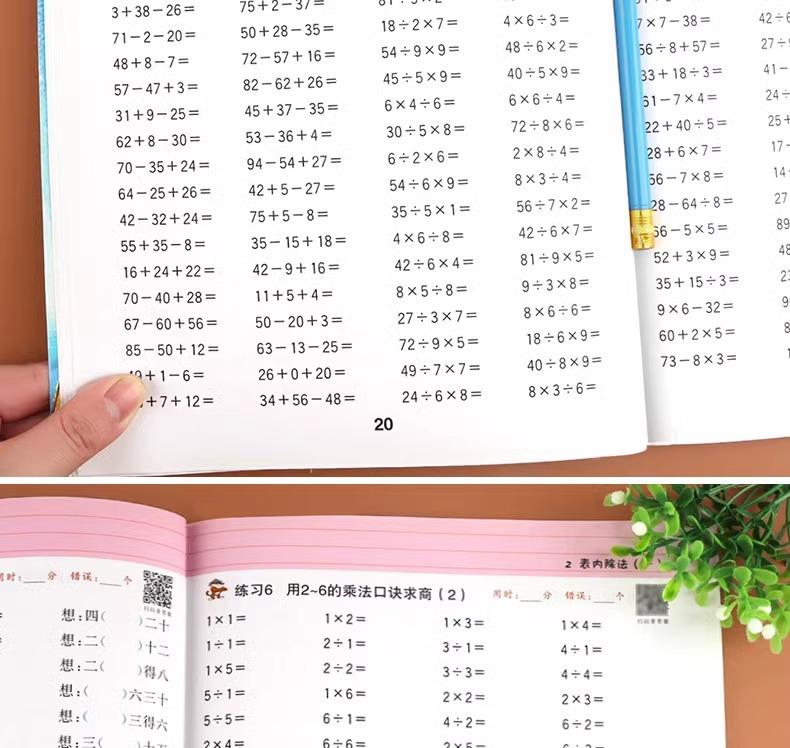 3+38-26= 75+2-37=
71-2-20= 50+28-35= 18÷2×7= 4×6÷3= 7×7-38=
48+8-7= 72-57+16= 54÷9×9= 48÷6×2= 56÷8+57=
57-47+3= 82-62+26= 45÷5×9= 40÷5×9= 33+18÷3=
31+9-25= 45+37-35= 6×4÷6= 6×6÷4= 61-7×4=
62+8-30= 53-36+4= 30÷5×8= 72÷8×6= 22+40÷5=
70-35+24= 94-54+27= 6÷2×6= 2×8÷4= 28+6×7=
64-25+26= 42+5-27= 54÷6×9= 8×3÷4= 56-7×8=
42-32+24= 75+5-8= 35÷5×1= 56÷7×2= 28-64÷8=
55+35-8= 35-15+18= 4×6÷8= 42÷6×7= 66-5×5=
16+24+22= 42-9+16= 42÷6×4= 81÷9×5= 52+3×9=
70-40+28= 11+5+4= 8×5÷8= 9÷3×8= 35+15÷3=
67-60+56= 50-20+3= 27÷3×7= 8×6÷6= 9×6-32=
85-50+12= 63-13-25= 72÷9×5= 18÷6×9= 60+2×5=
+1-6= 26+0+20= 49÷7×7= 40÷8×9= 73-8×3=
+7+12= 34+56-48= 24÷6×8= 8×3÷6=
20
2 表内除法(一)
用时:___分 错误:___个
想:四( )二十
想:二( )十二
想:二( )得八
想:( )六三十
想:( )三得六
想:三( )十五
练习6 用2~6的乘法口诀求商(2) 用时:___分 错误:___个
扫码查答案
1×1= 1×2= 1×3= 1×4=
1÷1= 2÷1= 3÷1= 4÷1=
1×5= 2÷2= 3÷3= 4÷4=
5÷1= 1×6= 2×2= 2×3=
5÷5= 6÷1= 4÷2= 6÷2=
2×4= 6÷6= 2×5= 6÷3=